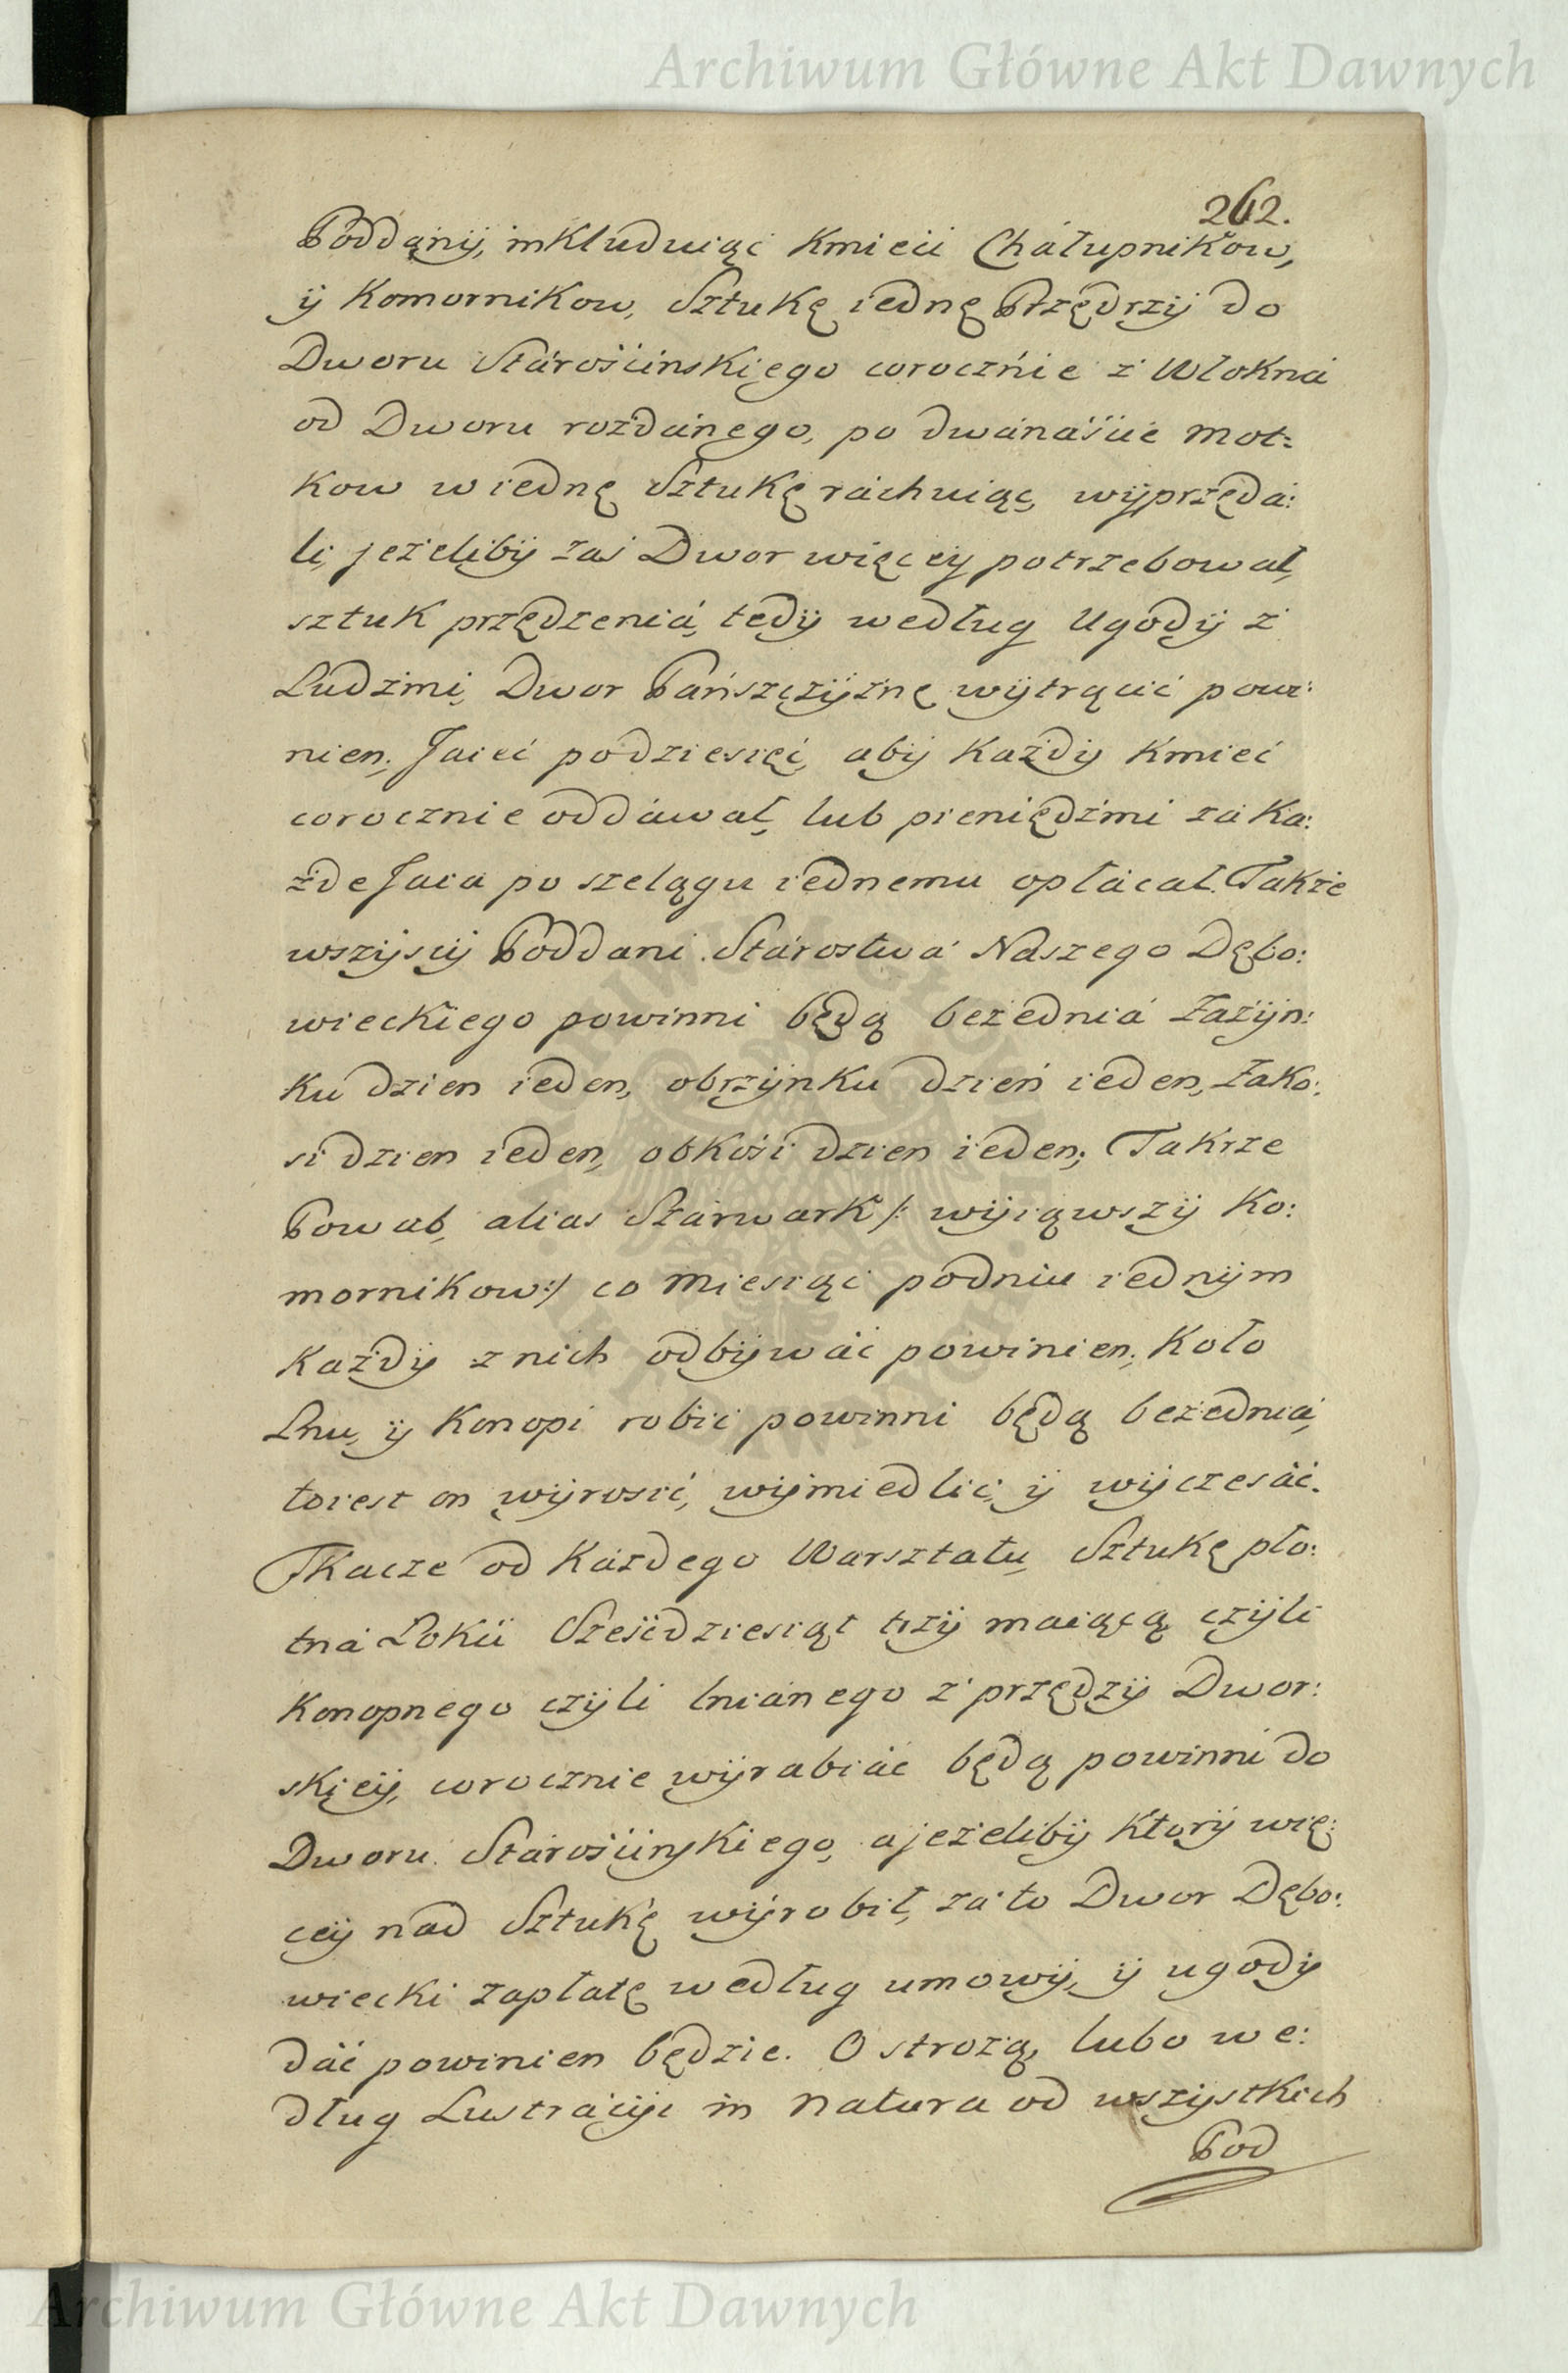 Archiwum Główne Akt Dawnych
262.
Poddąnÿ, inkluduiąc Kmieci Chałupnikow,
ÿ Komornikow, Sztukę iednę Przędzÿ do
Dworu Stárościnskięgo corocznie z Włokná
od Dworu rozdánego, po dwánaście mot:
kow w iednę Sztukę ráchuiąc, wÿprzędá:
li, jeżelibÿ zaś Dwor więceÿ potrzebował,
sztuk przędzeniá, tedÿ według Ugodÿ z
Ludźmi, Dwor Pańszczÿznę wÿtrącić powi:
nien; Jaieć podziesięć, abÿ Każdÿ Kmieć
corocznie oddáwał, lub pieniędźmi zá Ka:
żde Jaia po szelągu iednemu opłácał. Także
wszÿscÿ Poddani Stárostwá Naszego Dębo:
wieckiego powinni będą bezedniá Zażÿn:
ku dzien ieden, obrzÿnku dzień ieden, Zako:
si dzien ieden, obkośi dzien ieden; Takrze
Powab, alias Szárwark /: wÿiąwszÿ Ko:
mornikow:/ co Miesiąc podniu iednÿm
Każdÿ z nich odbÿwáć powinien; Koło
Lnu, ÿ Konopi robić powinni będą bezedniá,
toiest on wÿrosić, wÿmiedlić, ÿ wÿczesáć.
Tkacze od Káżdego Warsztatu, Sztukę pło:
tná Łokci Sześćdziesiąt trzÿ maiącą czÿli
Konopnego czÿli lniánego z przędzÿ Dwor:
skięÿ, corocznie wÿrabiáć będą powinni do
Dworu Stárościnskiego, a jeżelibÿ Ktorÿ wię:
ceÿ nad Sztukę wÿrobił, zá to Dwor Dębo:
wiecki zapłatę według umowÿ, ÿ ugodÿ
dáć powinien będzie. O strożą, lubo we:
dług Lustrácÿi in Natura od wszÿstkich
Pod
Archiwum Główne Akt Dawnych